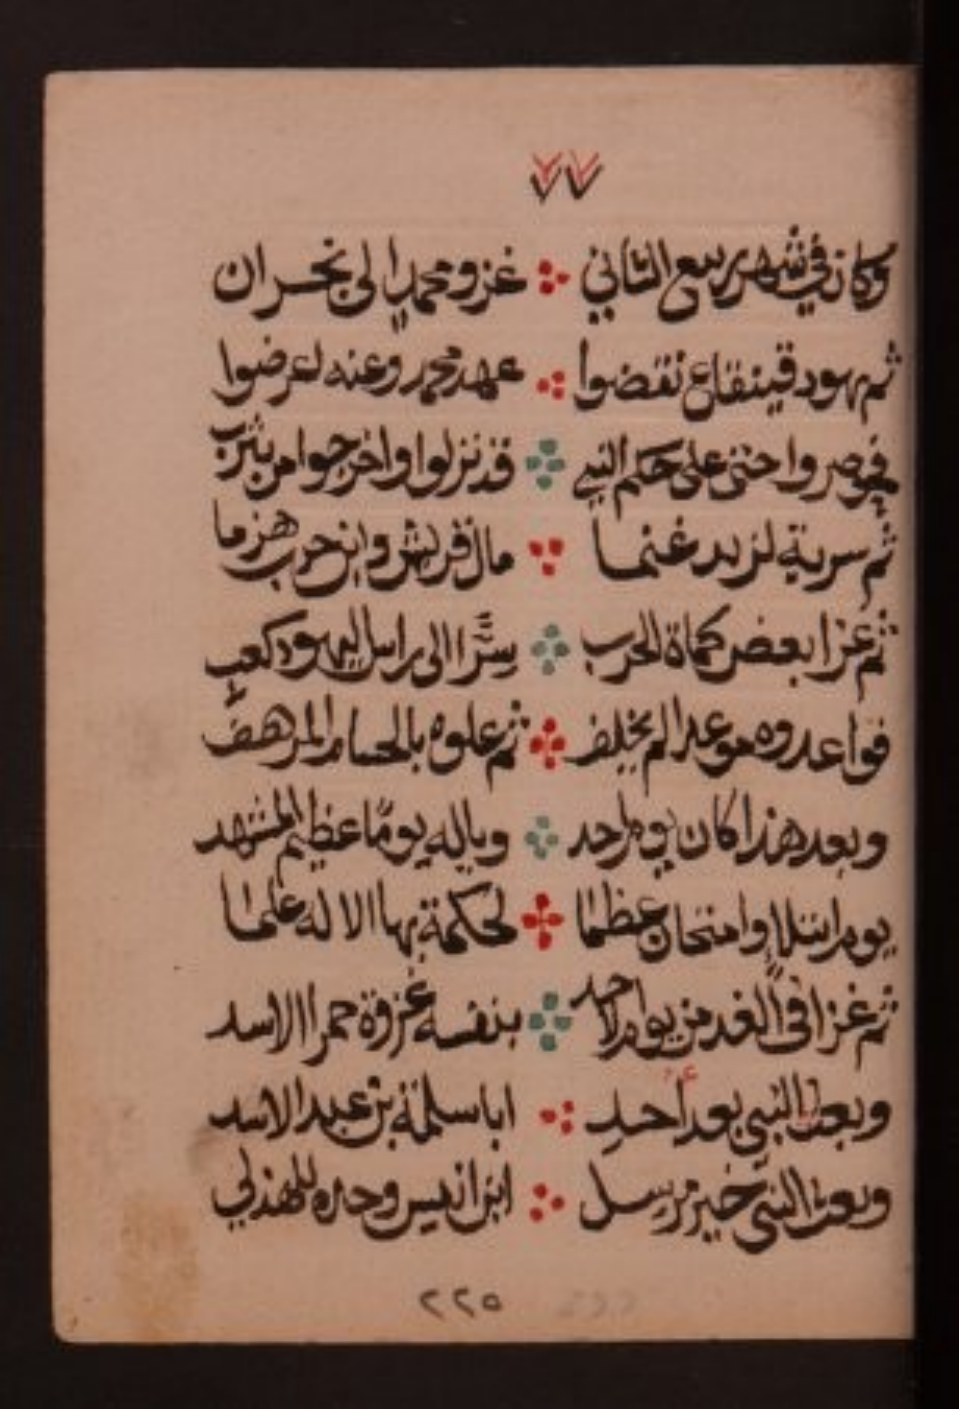 ٧٧
وكان في شهر ربيع الثاني غزو محمد إلى نجران
ثم يهود قينقاع نقضوا عهد محمد وعنه اعرضوا
فحوصروا حتى على حكم النبي قد نزلوا واخرجوا من يثرب
ثم سرية لزيد غنما مال قريش وابن حرب هزما
ثم غزا بعض كماة الحرب سرًّا الى راس اليهود كعب
فواعدوه موعدا لم يخلف ثم علوه بالحسام المرهف
وبعد هذا كان يوم احد وياله يومًا عظيم المشهد
يوم ابتلاء وامتحان عظما لحكمة بها الاله علما
ثم غزا في الغد من يوم احد بنفسه غزوة حمرا الاسد
وبعث النبي بعد أحد ابا سلمة بن عبد الاسد
وبعث النبي خير مرسل ابن انيس وحده للهذلي
٢٢٥